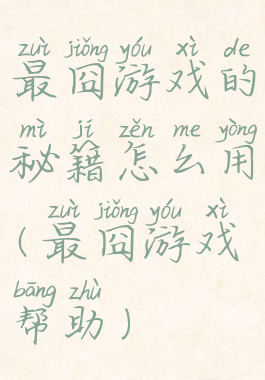 zuì jiǒng yóu xì de
最囧游戏的
mì jí zěn me yòng
秘籍怎么用
zuì jiǒng yóu xì
(最囧游戏
bāng zhù
帮助)